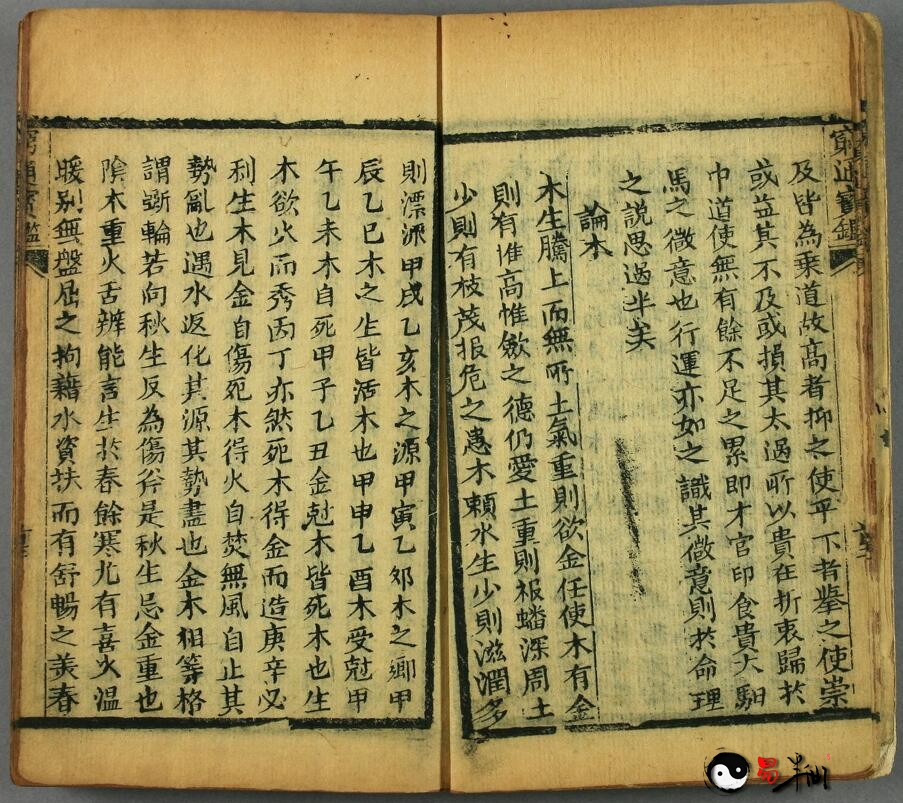 窮通寶鑑
及皆為乘道故高者抑之使平下者舉之使崇
或益其不及或損其太過所以貴在折衷歸於
中道使無有餘不足之累即才官印食貴人馹
馬之微意也行運亦如之識其微意則於命理
之說思過半矣
論木
木生騰上而無所止氣重則欲金任使木有金
則有惟高惟斂之德仍愛土重則根蟠深周土
少則有枝茂根危之患木賴水生少則滋潤多
則漂流甲戌乙亥木之源甲寅乙卯木之鄉甲
辰乙巳木之生皆活木也甲申乙酉木受尅甲
午乙未木自死甲子乙丑金尅木皆死木也生
木欲火而秀丙丁亦然死木得金而造庚辛必
利生木見金自傷死木得火自焚無風自止其
勢亂也遇水返化其源其勢盡也金木相等格
謂斲輪若向秋生反為傷斧是秋生忌金重也
陰木重火舌辨能言生於春餘寒尤有喜火溫
暖別無盤屈之拘藉水資扶而有舒暢之美春
窮通寶鑑
易半仙